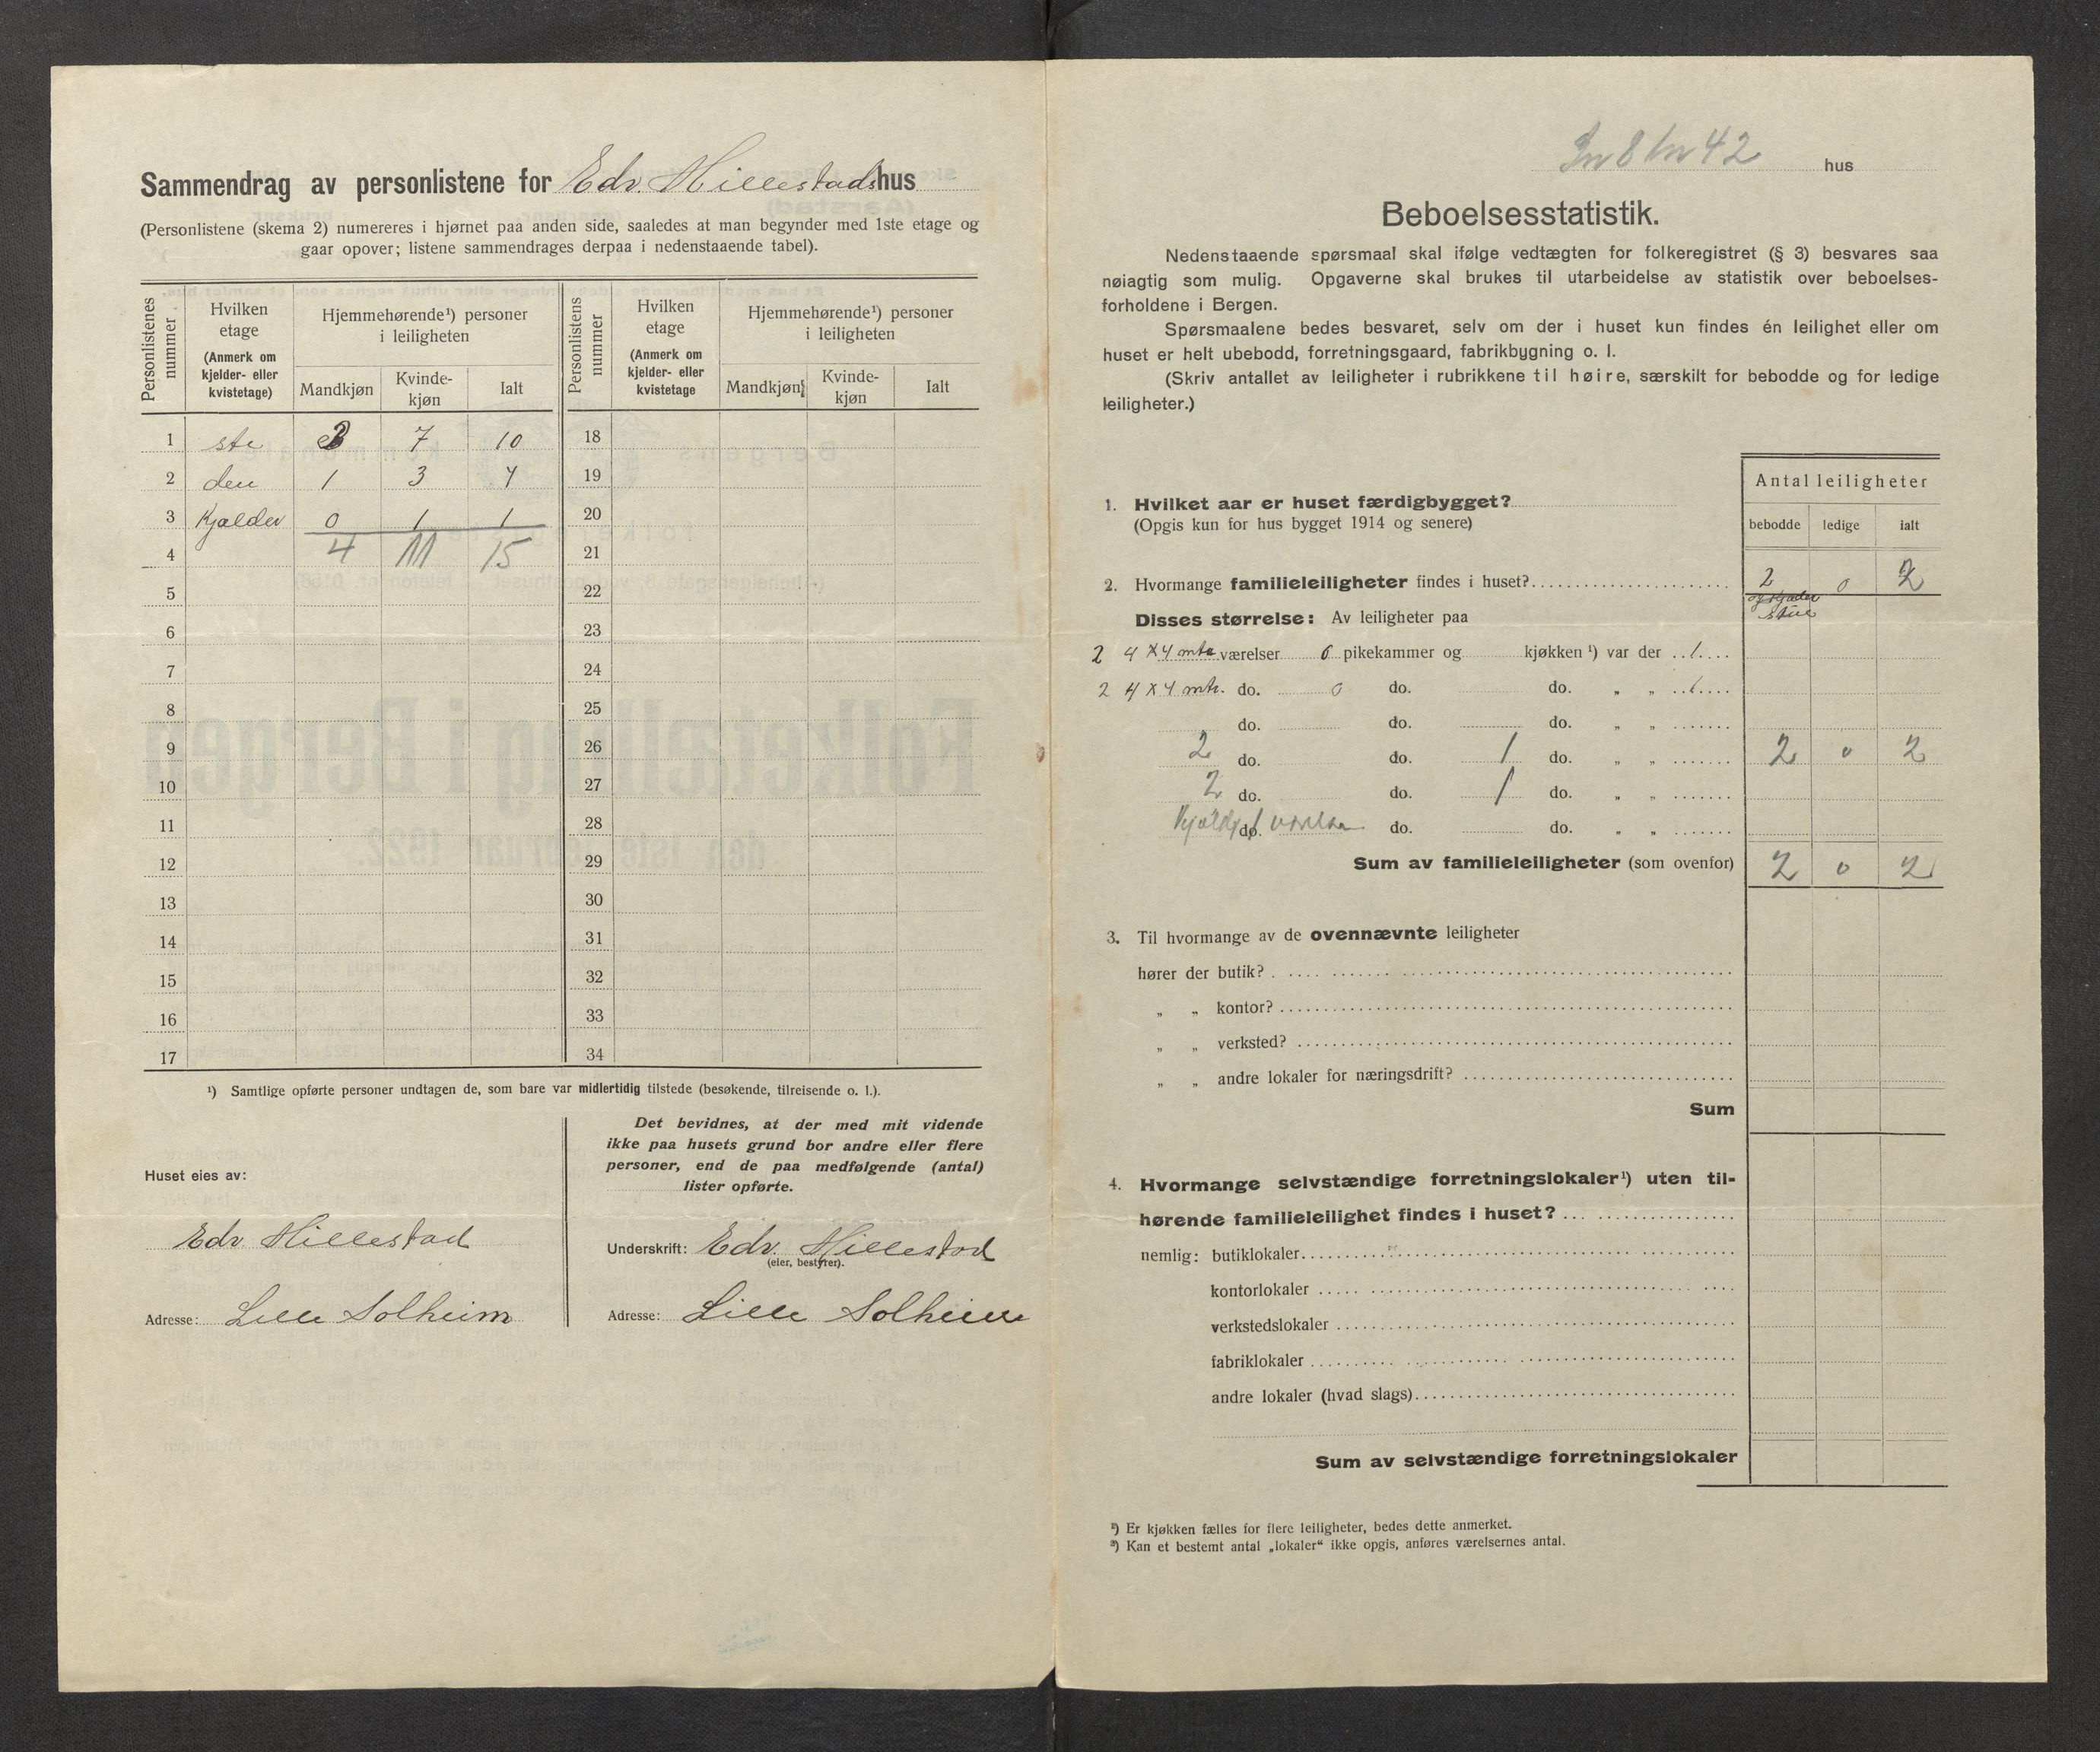 Sammendrag av personlistene for Edv. Hillestads hus
(Personlistene (skema 2) numereres i hjørnet paa anden side, saaledes at man begynder med 1ste etage og
gaar opover; listene sammendrages derpaa i nedenstaaende tabel).
Personlistenes nummer
Hvilken etage (Anmerk om kjelder- eller kvistetage)
Hjemmehørende¹) personer i leiligheten
Mandkjøn Kvindekjøn Ialt
Personlistens nummer
Hvilken etage (Anmerk om kjelder- eller kvistetage
Hjemmehørende¹) personer i leiligheten
Mandkjøn Kvinde-kjøn Ialt
1 ste 3 7 10 18
2 den 1 3 4 19
3 Kjælder 0 1 1 20
4 4 11 15 21
5 22
6 23
7 24
8 25
9 26
10 27
11 28
12 29
13 30
14 31
15 32
16 33
17 34
¹) Samtlige opførte personer undtagen de, som bare var midlertidig tilstede (besøkende, tilreisende o. l.).
Huset eies av:
Edv. Hillestad
Adresse: Lille Solheim
Det bevidnes, at der med mit vidende
ikke paa husets grund bor andre eller flere
personer, end de paa medfølgende (antal)
lister opførte.
Underskrift: Edv. Hillestad
(eier, bestyrer).
Adresse: Lille Solheim
Gn 8 bn 42 hus
Beboelsesstatistik.
Nedenstaaende spørsmaal skal ifølge vedtægten for folkeregistret (§ 3) besvares saa
nøiagtig som mulig. Opgaverne skal brukes til utarbeidelse av statistik over beboelses-
forholdene i Bergen.
Spørsmaalene bedes besvaret, selv om der i huset kun findes én leilighet eller om
huset er helt ubebodd, forretningsgaard, fabrikbygning o. l.
(Skriv antallet av leiligheter i rubrikkene til høire, særskilt for bebodde og for ledige
leiligheter.)
Antal leiligheter
bebodde ledige ialt
1. Hvilket aar er huset færdigbygget?
(Opgis kun for hus bygget 1914 og senere)
2. Hvormange familieleiligheter findes i huset? 2 0 2
og Kjælder
stue
Disses størrelse: Av leiligheter paa
2 4 x 4 mtr værelser 0 pikekammer og kjøkken ¹) var der 1
2 4 x 4 mtr. do. 0 do. do. „ „ 1
do. do. do. „ „
2 do. do. 1 do. „ „ 2 0 2
2 do. do. 1 do. „ „
Kjælder 1 værelse do. do. do. „ „
Sum av familieleiligheter (som ovenfor) 2 0 2
3. Til hvormange av de ovennævnte leiligheter
hører der butik?
„ „ kontor?
„ „ verksted?
„ „ andre lokaler for næringsdrift?
Sum
4. Hvormange selvstændige forretningslokaler¹) uten til-
hørende familieleilighet findes i huset?
nemlig: butiklokaler
kontorlokaler
verkstedslokaler
fabriklokaler
andre lokaler (hvad slags)
Sum av selvstændige forretningslokaler
¹) Er kjøkken fælles for flere leiligheter, bedes dette anmerket.
²) Kan et bestemt antal „lokaler“ ikke opgis, anføres værelsernes antal.